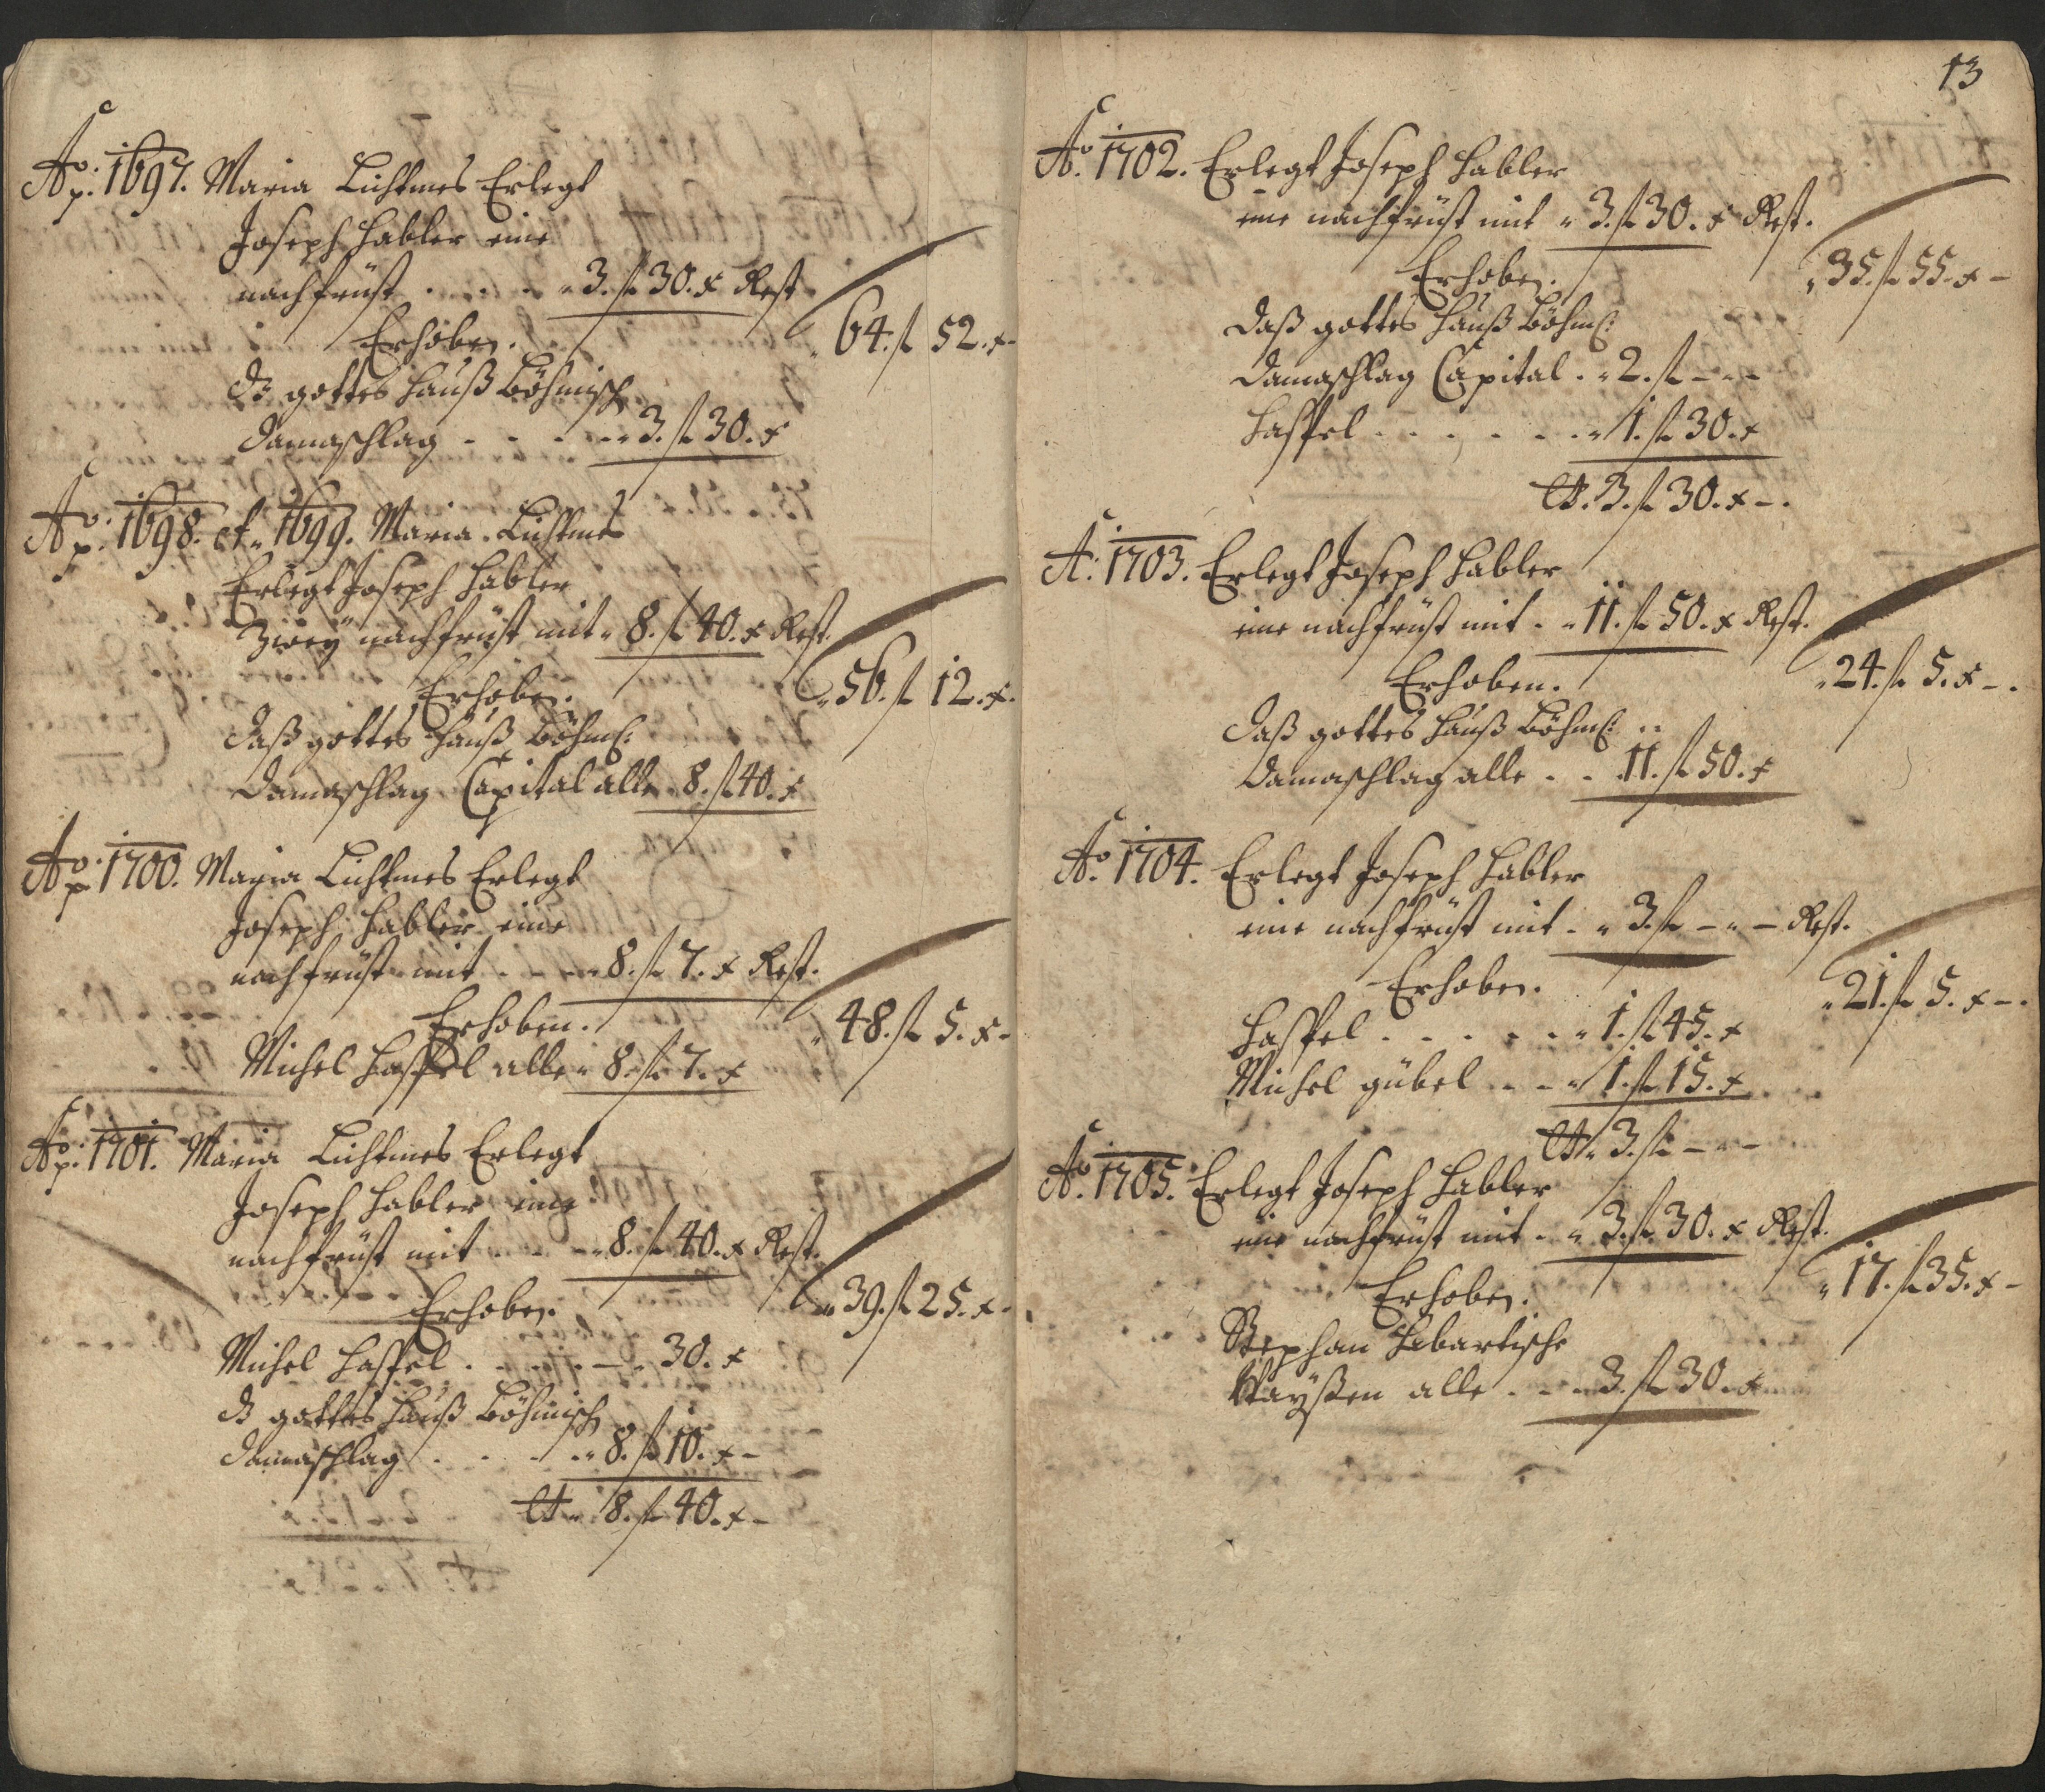 Ao. p. 1697. Maria Lichtmes Erlegt
Joseph Habler eine
nachfrist . . . . 3. fl 30. x Rest
64. fl 52. x
Erhoben.
Dz gottes hauß Böhmisch
Damaschlag - - - 3. fl 30. x
Ao. p. 1698. et 1699. Maria Lichtmes
Erlegt Joseph Habler
Zwey nachfrist mit 8. fl 40. x Rest.
56. fl 12. x.
Erhoben.
Daß gottes hauß Böhmß:
Damaschlag Capital alle 8. fl 40. x
Ao. p. 1700. Maria Lichtmes Erlegt
Joseph Habler eine
nachfrist mit . - - 8. fl 7. x Rest.
48. fl 5. x -
Erhoben.
Michel Hassel alle 8. fl 7. x
Ao. p. 1701. Maria Lichtmes Erlegt
Joseph Habler eine
nachfrist mit - - - 8. fl 40. x Rest.
39. fl 25. x -
Erhoben.
Michel Hassel . . . . - 30. x
Dz gottes hauß Böhmisch
Damaschlag . . . 8. fl 10. x -
8. fl 40. x -
13
Ao. 1702. Erlegt Joseph Habler
eine nachfrist mit 3. fl 30. x Rest.
35. fl 55. x -
Erhoben.
Daß gottes hauß Böhmß:
Damaschlag Capital . 2. fl - - -
Hassel . . . . . . 1. fl 30. x
3. fl 30. x -.
A: 1703. Erlegt Joseph Habler
eine nachfrist mit . 11. fl 50. x Rest.
24. fl 5. x -.
Erhoben.
Daß gottes hauß Böhmß:
Damaschlag alle . . 11. fl 50. x
Ao. 1704. Erlegt Joseph Habler
eine nachfrist mit . 3. fl - - - Rest.
21. fl 5. x -.
Erhoben.
Hassel . . . . . . 1. fl 45. x
Michel gübel . . - 1. fl 15. x
3. fl - - -
Ao. 1705. Erlegt Joseph Habler
eine nachfrist mit . 3. fl 30. x Rest.
17. fl 35. x -
Erhoben.
Stephan Habartische
Wayßen alle . . . 3. fl 30. x